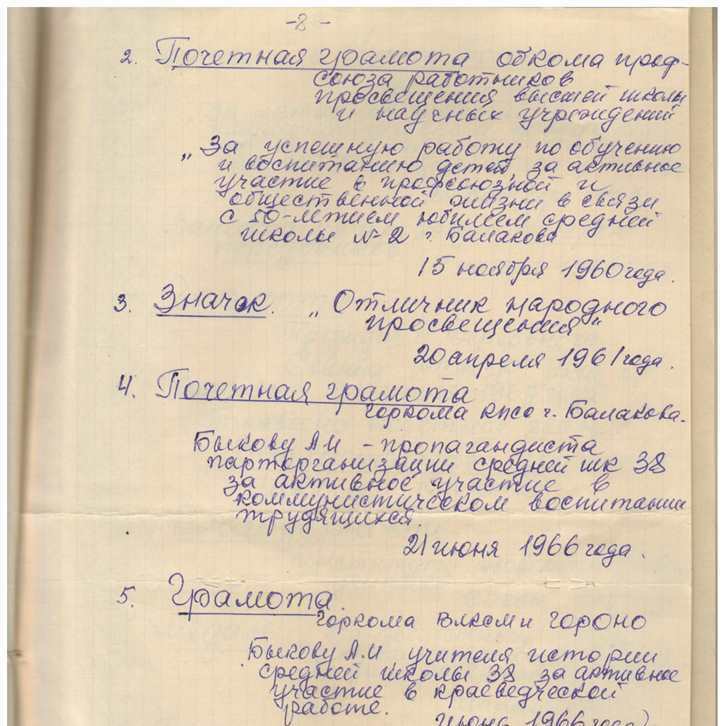 -2-
2. Почетная грамота обкома проф-
союза работников
просвещения высшей школы
и научных учреждений
„За успешную работу по обучению
и воспитанию детей, за активное
участие в профсоюзной и
общественной жизни в связи
с 50-летием юбилеем средней
школы №2 г. Балакова
15 ноября 1960 года.
3. Значок. „Отличник народного
просвещения"
20 апреля 1961 года.
4. Почетная грамота
горкома КПСС г. Балакова.
Быкову А.И - пропагандиста
парторганизации средней шк 38
за активное участие в
коммунистическом воспитании
трудящихся.
21 июня 1966 года.
5. Грамота.
горкома ВЛКСМ и ГОРОНО
Быкову А.И учителя истории
средней школы 38 за активное
участие в краеведческой
работе.
июнь 1966 года)